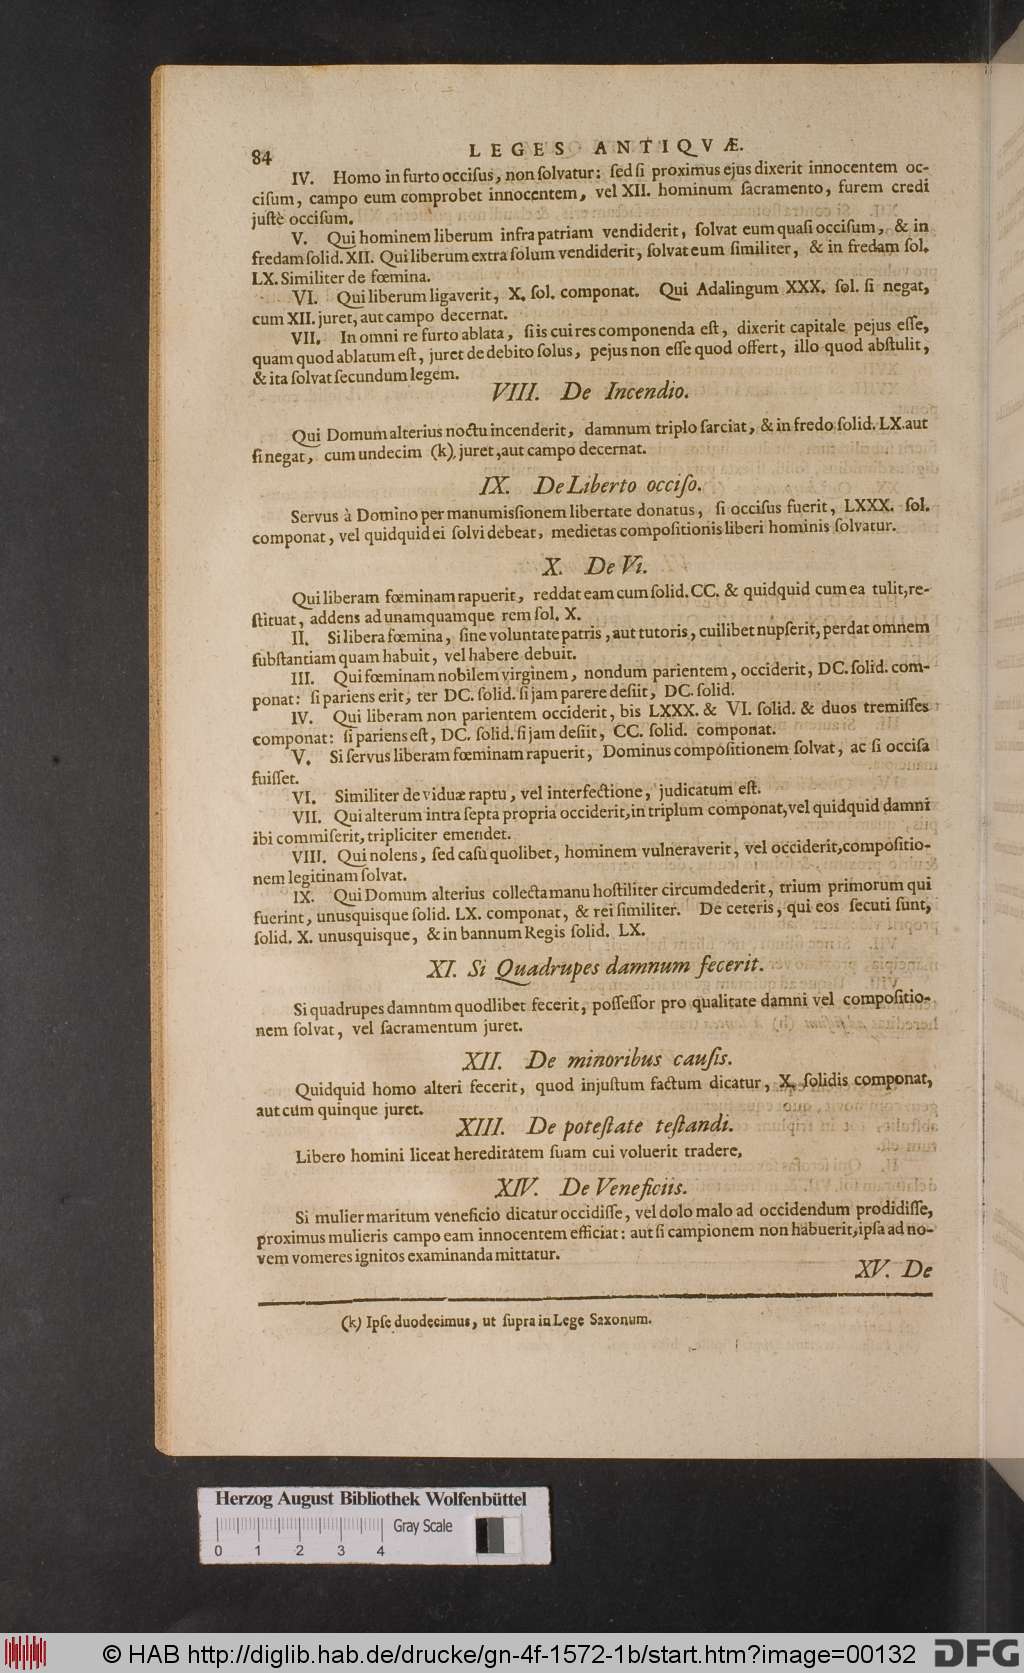 84
LEGES ANTIQVÆ.
IV. Homo in furto occiſus, non ſolvatur: ſed ſi proximus ejus dixerit innocentem oc-
ciſum, campo eum comprobet innocentem, vel XII. hominum ſacramento, furem credi
juſtè occiſum.
V. Qui hominem liberum infra patriam vendiderit, ſolvat eum quaſi occiſum, & in
fredam ſolid. XII. Qui liberum extra ſolum vendiderit, ſolvat eum ſimiliter, & in fredam ſol.
LX. Similiter de fœmina.
VI. Qui liberum ligaverit, X. ſol. componat. Qui Adalingum XXX. ſol. ſi negat,
cum XII. juret, aut campo decernat.
VII. In omni re furto ablata, ſi is cui res componenda eſt, dixerit capitale pejus eſſe,
quam quod ablatum eſt, juret de debito ſolus, pejus non eſſe quod offert, illo quod abſtulit,
& ita ſolvat ſecundum legem.
VIII. De Incendio.
Qui Domum alterius noctu incenderit, damnum triplo ſarciat, & in fredo ſolid. LX. aut
ſi negat, cum undecim (k), juret, aut campo decernat.
IX. De Liberto occiſo.
Servus à Domino per manumiſſionem libertate donatus, ſi occiſus fuerit, LXXX. ſol.
componat, vel quidquid ei ſolvi debeat, medietas compoſitionis liberi hominis ſolvatur.
X. De Vi.
Qui liberam fœminam rapuerit, reddat eam cum ſolid. CC. & quidquid cum ea tulit, re-
ſtituat, addens ad unamquamque rem ſol. X.
II. Si libera fœmina, ſine voluntate patris, aut tutoris, cuilibet nupſerit, perdat omnem
ſubſtantiam quam habuit, vel habere debuit.
III. Qui fœminam nobilem virginem, nondum parientem, occiderit, DC. ſolid. com-
ponat: ſi pariens erit, ter DC. ſolid. ſi jam parere deſiit, DC. ſolid.
IV. Qui liberam non parientem occiderit, bis LXXX. & VI. ſolid. & duos tremiſſes
componat: ſi pariens eſt, DC. ſolid. ſi jam deſiit, CC. ſolid. componat.
V. Si ſervus liberam fœminam rapuerit, Dominus compoſitionem ſolvat, ac ſi occiſa
fuiſſet.
VI. Similiter de viduæ raptu, vel interfectione, judicatum eſt.
VII. Qui alterum intra ſepta propria occiderit, in triplum componat, vel quidquid damni
ibi commiſerit, tripliciter emendet.
VIII. Qui nolens, ſed caſu quolibet, hominem vulneraverit, vel occiderit, compoſitio-
nem legitinam ſolvat.
IX. Qui Domum alterius collecta manu hoſtiliter circumdederit, trium primorum qui
fuerint, unusquisque ſolid. LX. componat, & rei ſimiliter. De ceteris, qui eos ſecuti ſunt,
ſolid. X. unusquisque, & in bannum Regis ſolid. LX.
XI. Si Quadrupes damnum fecerit.
Si quadrupes damnum quodlibet fecerit, poſſeſſor pro qualitate damni vel compoſitio-
nem ſolvat, vel ſacramentum juret.
XII. De minoribus cauſis.
Quidquid homo alteri fecerit, quod injuſtum factum dicatur, X. ſolidis componat,
aut cum quinque juret.
XIII. De poteſtate teſtandi.
Libero homini liceat hereditatem ſuam cui voluerit tradere,
XIV. De Veneficiis.
Si mulier maritum veneficio dicatur occidiſſe, vel dolo malo ad occidendum prodidiſſe,
proximus mulieris campo eam innocentem efficiat: aut ſi campionem non habuerit, ipſa ad no-
vem vomeres ignitos examinanda mittatur.
XV. De
(k) Ipſe duodecimus, ut ſupra in Lege Saxonum.
Herzog August Bibliothek Wolfenbüttel
Gray Scale
0 1 2 3 4
© HAB http://diglib.hab.de/drucke/gn-4f-1572-1b/start.htm?image=00132
DFG